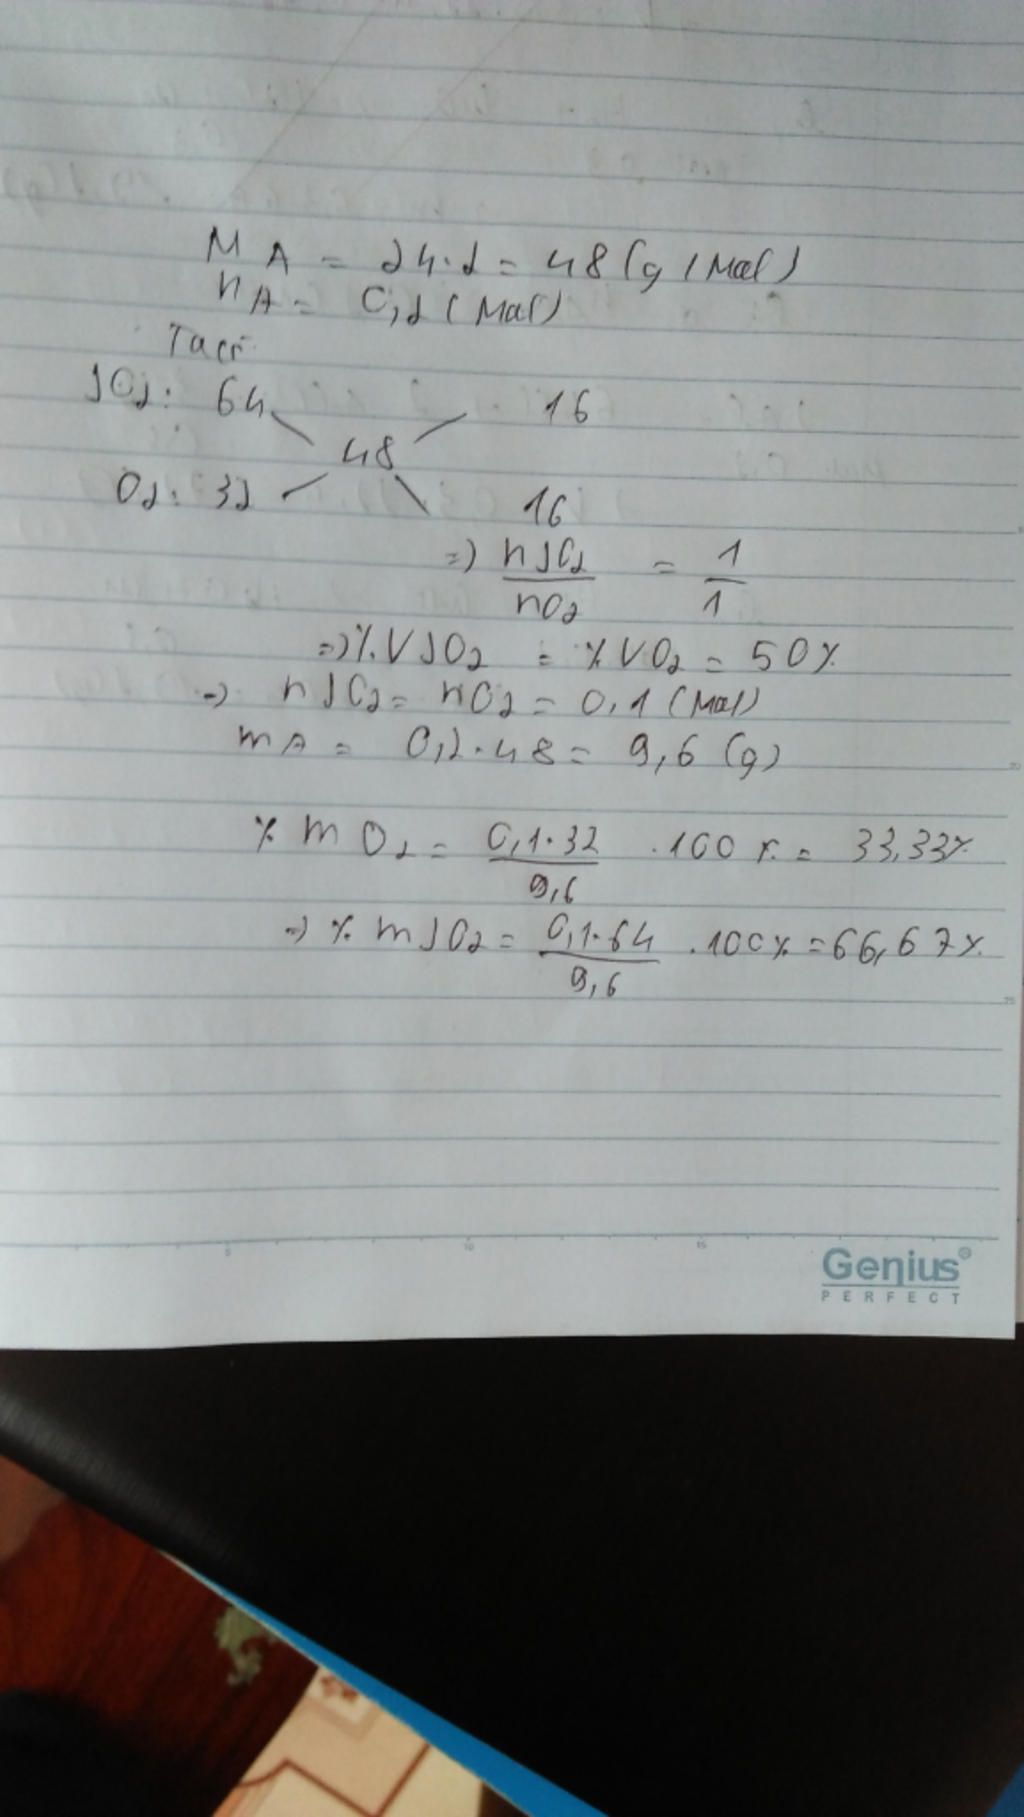 MA = 24.2 = 48 (g/mol)
nA = 0,2 (mol)
Ta có:
SO2: 64 16
48
O2: 32 16
=> nSO2/nO2 = 1/1
=> %VSO2 = %VO2 = 50%
=> nSO2 = nO2 = 0,1 (mol)
mA = 0,2.48 = 9,6 (g)
%mO2 = 0,1.32/9,6 .100% = 33,33%
=> %mSO2 = 0,1.64/9,6 .100% = 66,67%
5 10 15
Genius
PERFECT